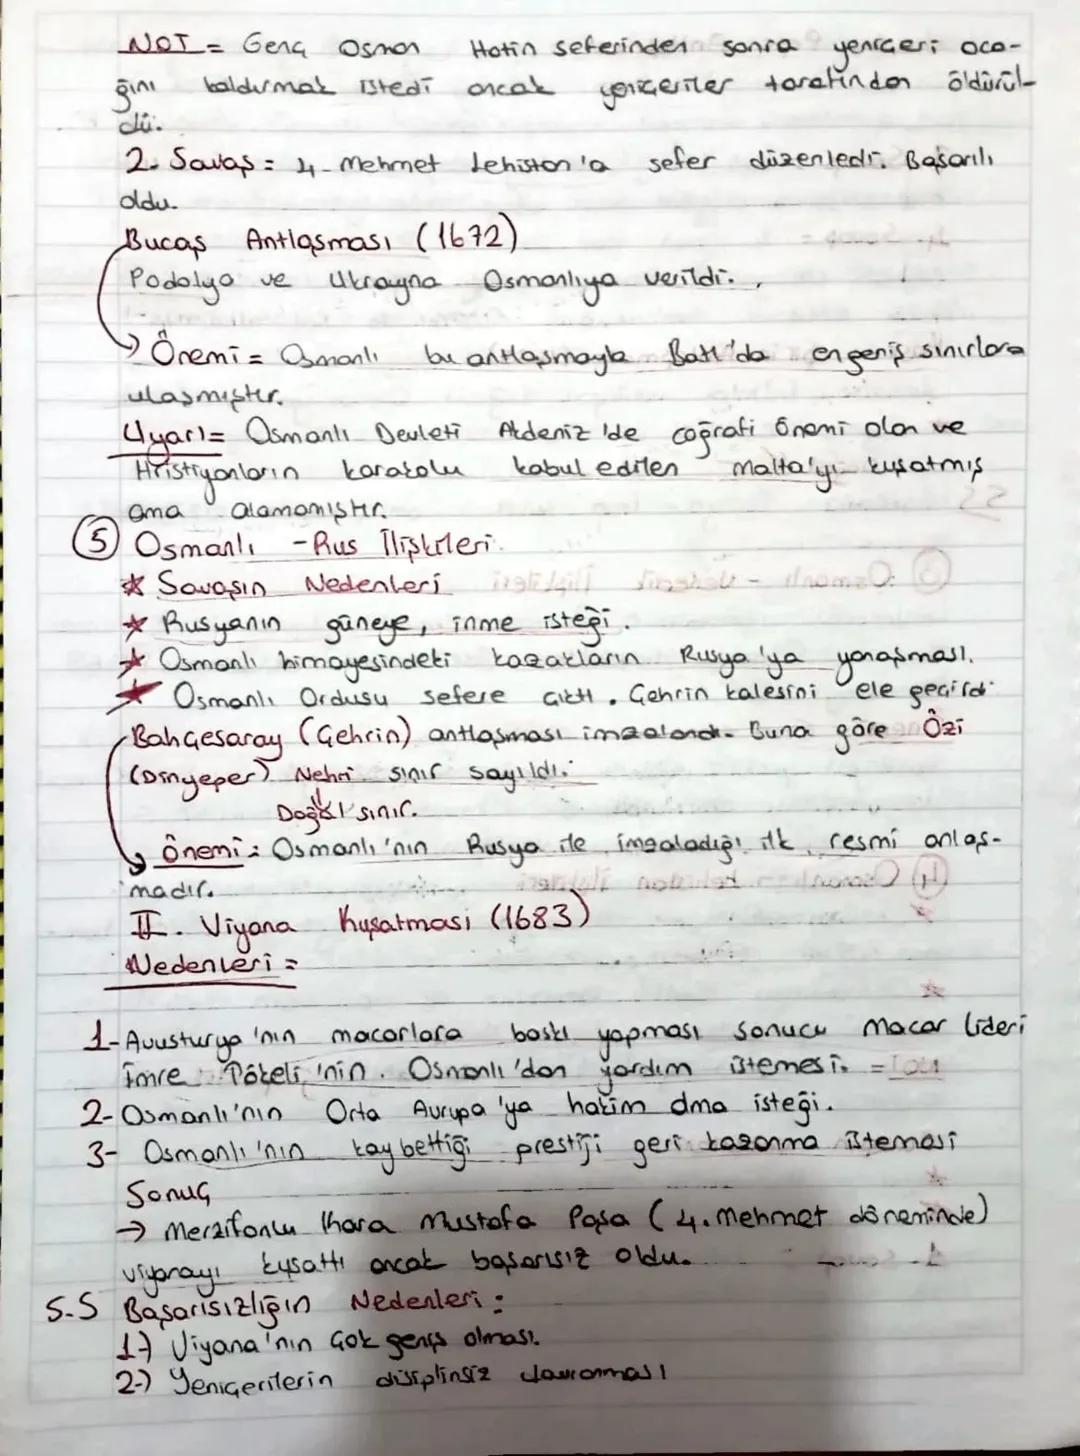 NOT = Genç Osman Hotin seferinden sonra yeniçeri oca-
ğını kaldırmak istedi ancak yeniçeriler tarafından öldürül-
dü.
2. Savaş = 4. Mehmet Lehistan'a sefer düzenledi. Başarılı
oldu.
Bucaş Antlaşması (1672)
Podolya ve Ukrayna Osmanlıya verildi.
→ Önemi = Osmanlı bu antlaşmayla Batı'da en geniş sınırlara
ulaşmıştır.
Uyarı = Osmanlı Devleti Akdeniz'de coğrafi önemi olan ve
Hristiyanların karakolu kabul edilen Malta'yı kuşatmış
ama alamamıştır.
5 Osmanlı - Rus İlişkileri
* Savaşın Nedenleri
* Rusyanın güneye, inme isteği.
* Osmanlı himayesindeki kazakların Rusya'ya yanaşması.
* Osmanlı Ordusu sefere çıktı. Çehrin kalesini ele geçirdi.
Bahçesaray (Çehrin) antlaşması imzalandı. Buna göre Özi
(Dinyeper) Nehri sınır sayıldı.
Doğal sınır.
→ Önemi: Osmanlı'nın Rusya ile imzaladığı ilk resmi anlaş-
madır.
II. Viyana Kuşatması (1683)
Nedenleri =
1- Avusturya'nın macarlara baskı yapması sonucu Macar lideri
İmre Tökeli'nin Osmanlı'dan yardım istemesi.
2- Osmanlı'nın Orta Avrupa'ya hakim olma isteği.
3- Osmanlı'nın kaybettiği prestiji geri kazanma istemesi
Sonuç
→ Merzifonlu Khara Mustafa Paşa (4. Mehmet döneminde)
viyanayı kuşattı ancak başarısız oldu.
S.S Başarısızlığın Nedenleri :
1-) Viyana'nın çok geniş olması.
2-) Yeniçerilerin disiplinsiz davranması